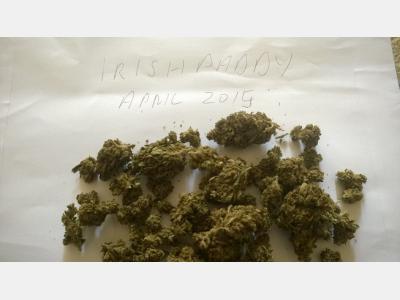 IRISHPADDY
APRIL 2015